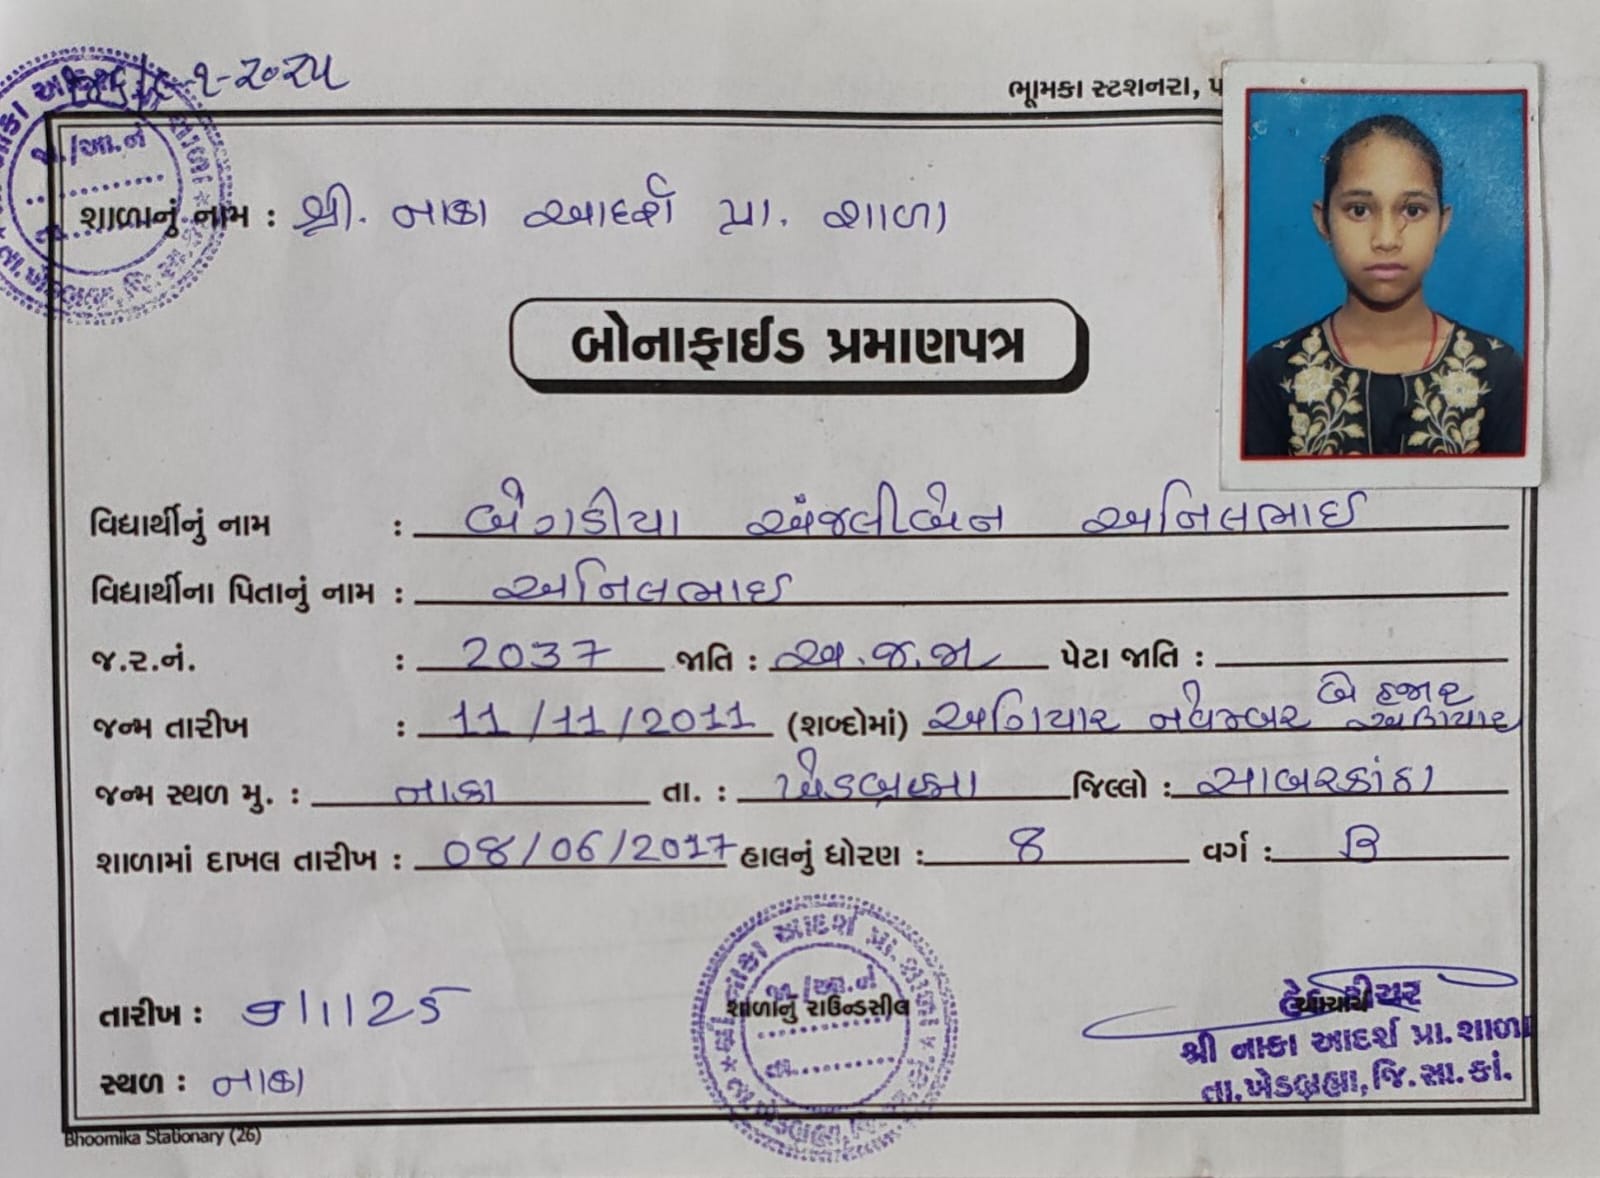 ૯-૧-૨૦૨૫
શ્રી નાકા આદર્શ પ્રા. શાળા
શાળાનું નામ : શ્રી. નાકા આદર્શ પ્રા. શાળા
બોનાફાઈડ પ્રમાણપત્ર
વિદ્યાર્થીનું નામ : બેગડીયા અંજલીબેન અનિલભાઈ
વિદ્યાર્થીના પિતાનું નામ : અનિલભાઈ
જ.ર.નં. : 2037 જાતિ : અ.જ.જા પેટા જાતિ :
જન્મ તારીખ : 11/11/2011 (શબ્દોમાં) અગિયાર નવેમ્બર બે હજાર અગિયાર
જન્મ સ્થળ મુ. : નાકા તા. : ખેડબ્રહ્મા જિલ્લો : સાબરકાંઠા
શાળામાં દાખલ તારીખ : 08/06/2017 હાલનું ધોરણ : 8 વર્ગ : B
શ્રી નાકા આદર્શ પ્રા. શાળા
તારીખ : ૯/1/25 શાળાનું રાઉન્ડસીલ આચાર્ય
શ્રી નાકા આદર્શ પ્રા. શાળા
સ્થળ : નાકા તા. ખેડબ્રહ્મા, જિ. સા. કાં.
Bhoomika Stationary (26)